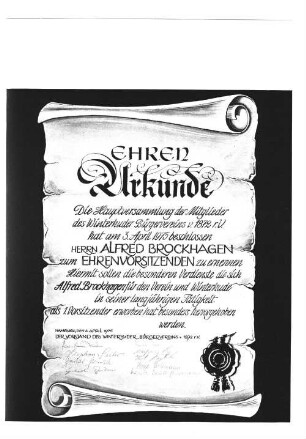 EHREN
Urkunde
Die Hauptversammlung der Mitglieder
des Winterhuder Bürgervereins v. 1872 r.V.
hat am 3. April 1975 beschlossen
HERRN ALFRED BROCKHAGEN
zum EHRENVORSITZENDEN zu ernennen
Hiermit sollen die besonderen Verdienste die sich
Alfred Brockhagen für den Verein und Winterhude
in seiner langjährigen Tätigkeit
als 1. Vorsitzender erworben hat besonders hervorgehoben
werden.
HAMBURG, DEN APRIL 1975
DER VORSTAND DES WINTERHUDER BÜRGERVEREINS v. 1872 r.V.